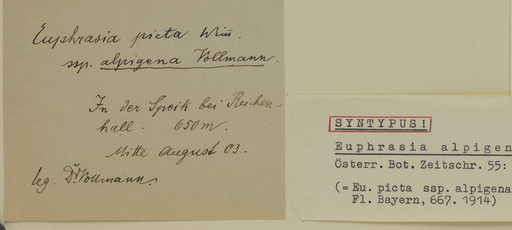 Euphrasia picta Wim.
ssp. alpigena Vollmann.
In der Speik bei Reichen-
hall. 650 m.
Mitte August 03.
leg. Dr Vollmann.
SYNTYPUS!
Euphrasia alpigen
Österr. Bot. Zeitschr. 55:
(= Eu. picta ssp. alpigena
Fl. Bayern, 667. 1914)